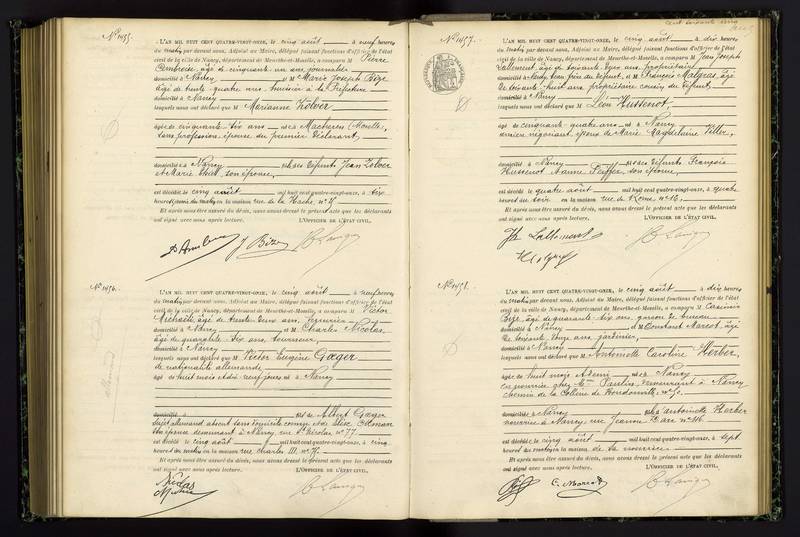 N° 1455.
L'AN MIL HUIT CENT QUATRE-VINGT-ONZE, le cinq août à neuf heures
du matin par devant nous, Adjoint au Maire, délégué faisant fonctions d'officier de l'état
civil de la ville de Nancy, département de Meurthe-et-Moselle, a comparu M Pierre
âgé de cinquante un ans, journalier
domicilié à Nancy et M Marie Joseph Bize
âgé de trente quatre ans, huissier à la Préfecture
domicilié à Nancy
lesquels nous ont déclaré que M Marianne Zolver
âgée de cinquante six ans née à Macheren (Moselle),
sans profession, épouse du premier déclarant
domiciliée à Nancy des défunts Jean Zolver
et Marie son épouse,
est décédée le cinq août mil huit cent quatre-vingt-onze, à six
heures du matin en la maison rue de la Hache, n°
Et après nous être assuré du décès, nous avons dressé le présent acte que les déclarants
ont signé avec nous après lecture. L'OFFICIER DE L'ÉTAT CIVIL,
J Bize
N° 1456.
L'AN MIL HUIT CENT QUATRE-VINGT-ONZE, le cinq août à neuf heures
du matin par devant nous, Adjoint au Maire, délégué faisant fonctions d'officier de l'état
civil de la ville de Nancy, département de Meurthe-et-Moselle, a comparu M Victor
âgé de trente deux ans,
domicilié à Nancy et M Charles Nicolas,
âgé de quarante six ans, tourneur,
domicilié à Nancy
lesquels nous ont déclaré que M Victor Eugène Gager
de nationalité allemande
âgé de huit mois et dix neuf jours né à Nancy
domicilié à fils de Albert Gager
sujet allemand absent sans domicile connu et de
son épouse demeurant à Nancy, rue St Nicolas n° 77
est décédé le cinq août mil huit cent quatre-vingt-onze, à cinq
heures du matin en la maison rue Charles III, n°
Et après nous être assuré du décès, nous avons dressé le présent acte que les déclarants
ont signé avec nous après lecture. L'OFFICIER DE L'ÉTAT CIVIL,
Nicolas
cent soixante cinq
N° 1457.
L'AN MIL HUIT CENT QUATRE-VINGT-ONZE, le cinq août à dix heures
du matin par devant nous, Adjoint au Maire, délégué faisant fonctions d'officier de l'état
civil de la ville de Nancy, département de Meurthe-et-Moselle, a comparu M Jean Joseph
Lallement, âgé de soixante ans, propriétaire
domicilié à Nancy, du défunt, et M François Malgras, âgé
de soixante huit ans, propriétaire cousin du défunt,
domicilié à Nancy
lesquels nous ont déclaré que M Léon Hussenot,
âgé de cinquante quatre ans né à Nancy
ancien négociant, époux de Marie Magdeleine
domicilié à Nancy fils des défunts François
Hussenot et Anne son épouse,
est décédé le quatre août mil huit cent quatre-vingt-onze, à quatre
heures du soir en la maison rue de Rome n° 16,
Et après nous être assuré du décès, nous avons dressé le présent acte que les déclarants
ont signé avec nous après lecture. L'OFFICIER DE L'ÉTAT CIVIL,
Lallement
Malgras
N° 1458.
L'AN MIL HUIT CENT QUATRE-VINGT-ONZE, le cinq août à dix heures
du matin par devant nous, Adjoint au Maire, délégué faisant fonctions d'officier de l'état
civil de la ville de Nancy, département de Meurthe-et-Moselle, a comparu M Casimir
âgé de quarante six ans, garçon de bureau
domicilié à Nancy et M Constant Marcot, âgé
de soixante ans, jardinier,
domicilié à Nancy
lesquels nous ont déclaré que M Antoinette Caroline Herber,
âgée de huit mois et demi née à Nancy
en nourrice chez demeurant à Nancy
chemin de la Colline de Boudonville, n°
domiciliée à Nancy fille d'Antoinette Herber
à Nancy, rue Jeanne d'Arc n°
est décédée le cinq août mil huit cent quatre-vingt-onze, à sept
heures du matin en la maison de la nourrice
Et après nous être assuré du décès, nous avons dressé le présent acte que les déclarants
ont signé avec nous après lecture. L'OFFICIER DE L'ÉTAT CIVIL,
C. Marcot